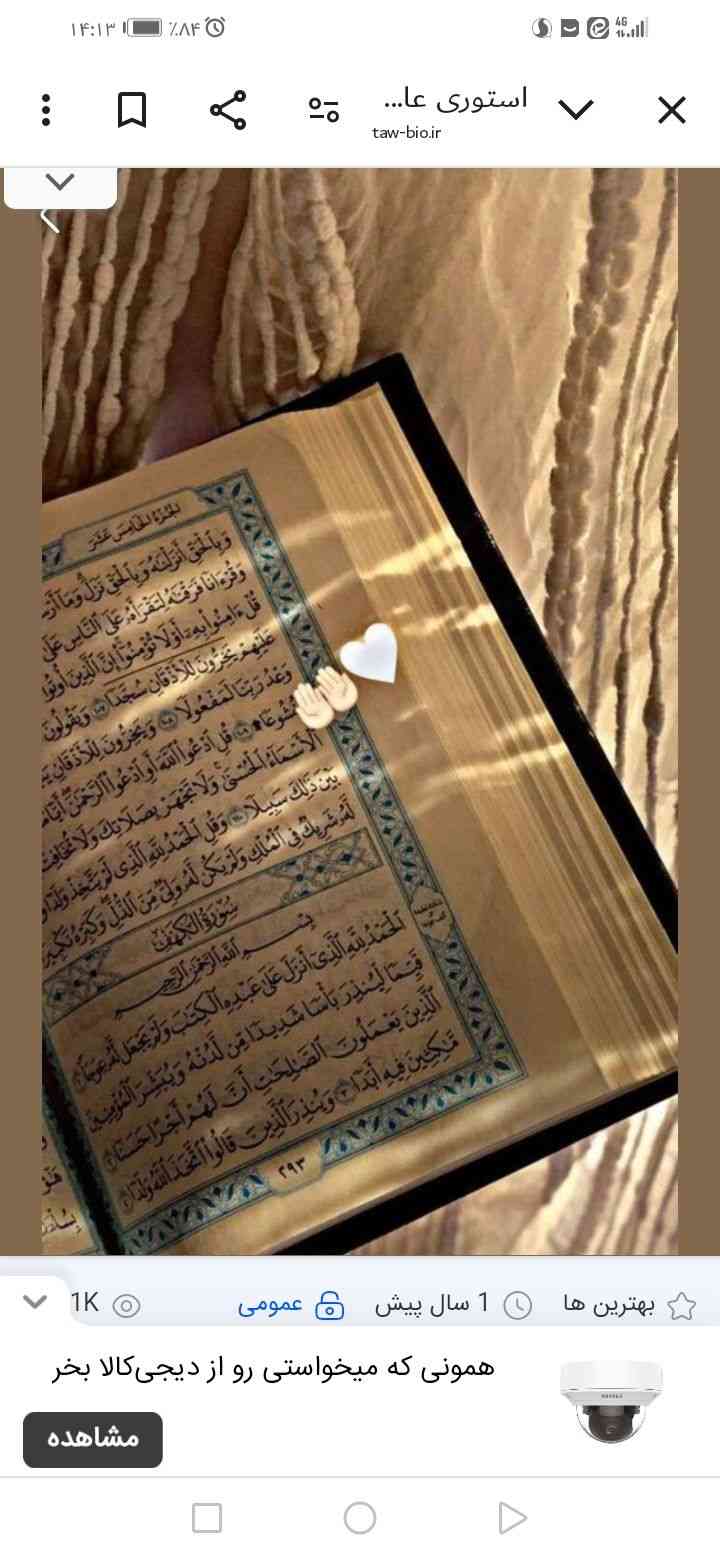 ۱۴:۱۳ ٪۸۴ 4G
استوری عا...
taw-bio.ir
الجزء الخامس عشر
وَبِالْحَقِّ أَنزَلْنَٰهُ وَبِالْحَقِّ نَزَلَ وَمَا
وَقُرْءَانًا فَرَقْنَٰهُ لِتَقْرَأَهُ عَلَى النَّاسِ عَلَىٰ
قُلْ ءَامِنُوا۟ بِهِۦٓ أَوْ لَا تُؤْمِنُوٓا۟ إِنَّ الَّذِينَ أُوتُوا۟
عَلَيْهِمْ يَخِرُّونَ لِلْأَذْقَانِ سُجَّدًا ۝ وَيَقُولُونَ
وَعْدُ رَبِّنَا لَمَفْعُولًا ۝ وَيَخِرُّونَ لِلْأَذْقَانِ
قُلِ ادْعُوا۟ اللَّهَ أَوِ ادْعُوا۟ الرَّحْمَٰنَ
الْأَسْمَآءُ الْحُسْنَىٰ وَلَا تَجْهَرْ بِصَلَاتِكَ وَلَا تُخَافِتْ
بَيْنَ ذَٰلِكَ سَبِيلًا ۝ وَقُلِ الْحَمْدُ لِلَّهِ الَّذِى لَمْ يَتَّخِذْ وَلَدًا
لَّهُۥ شَرِيكٌ فِى الْمُلْكِ وَلَمْ يَكُن لَّهُۥ وَلِىٌّ مِّنَ الذُّلِّ وَكَبِّرْهُ
سُورَةُ الْكَهْفِ
بِسْمِ اللَّهِ الرَّحْمَٰنِ الرَّحِيمِ
الْحَمْدُ لِلَّهِ الَّذِىٓ أَنزَلَ عَلَىٰ عَبْدِهِ الْكِتَٰبَ وَلَمْ يَجْعَل لَّهُۥ عِوَجَا
قَيِّمًا لِّيُنذِرَ بَأْسًا شَدِيدًا مِّن لَّدُنْهُ وَيُبَشِّرَ الْمُؤْمِنِينَ
الَّذِينَ يَعْمَلُونَ الصَّٰلِحَٰتِ أَنَّ لَهُمْ أَجْرًا حَسَنًا
مَّٰكِثِينَ فِيهِ أَبَدًا ۝ وَيُنذِرَ الَّذِينَ قَالُوا۟ اتَّخَذَ اللَّهُ وَلَدًا
٢٩٣
بهترین ها 1 سال پیش عمومی 1K
همونی که میخواستی رو از دیجی‌کالا بخر
مشاهده